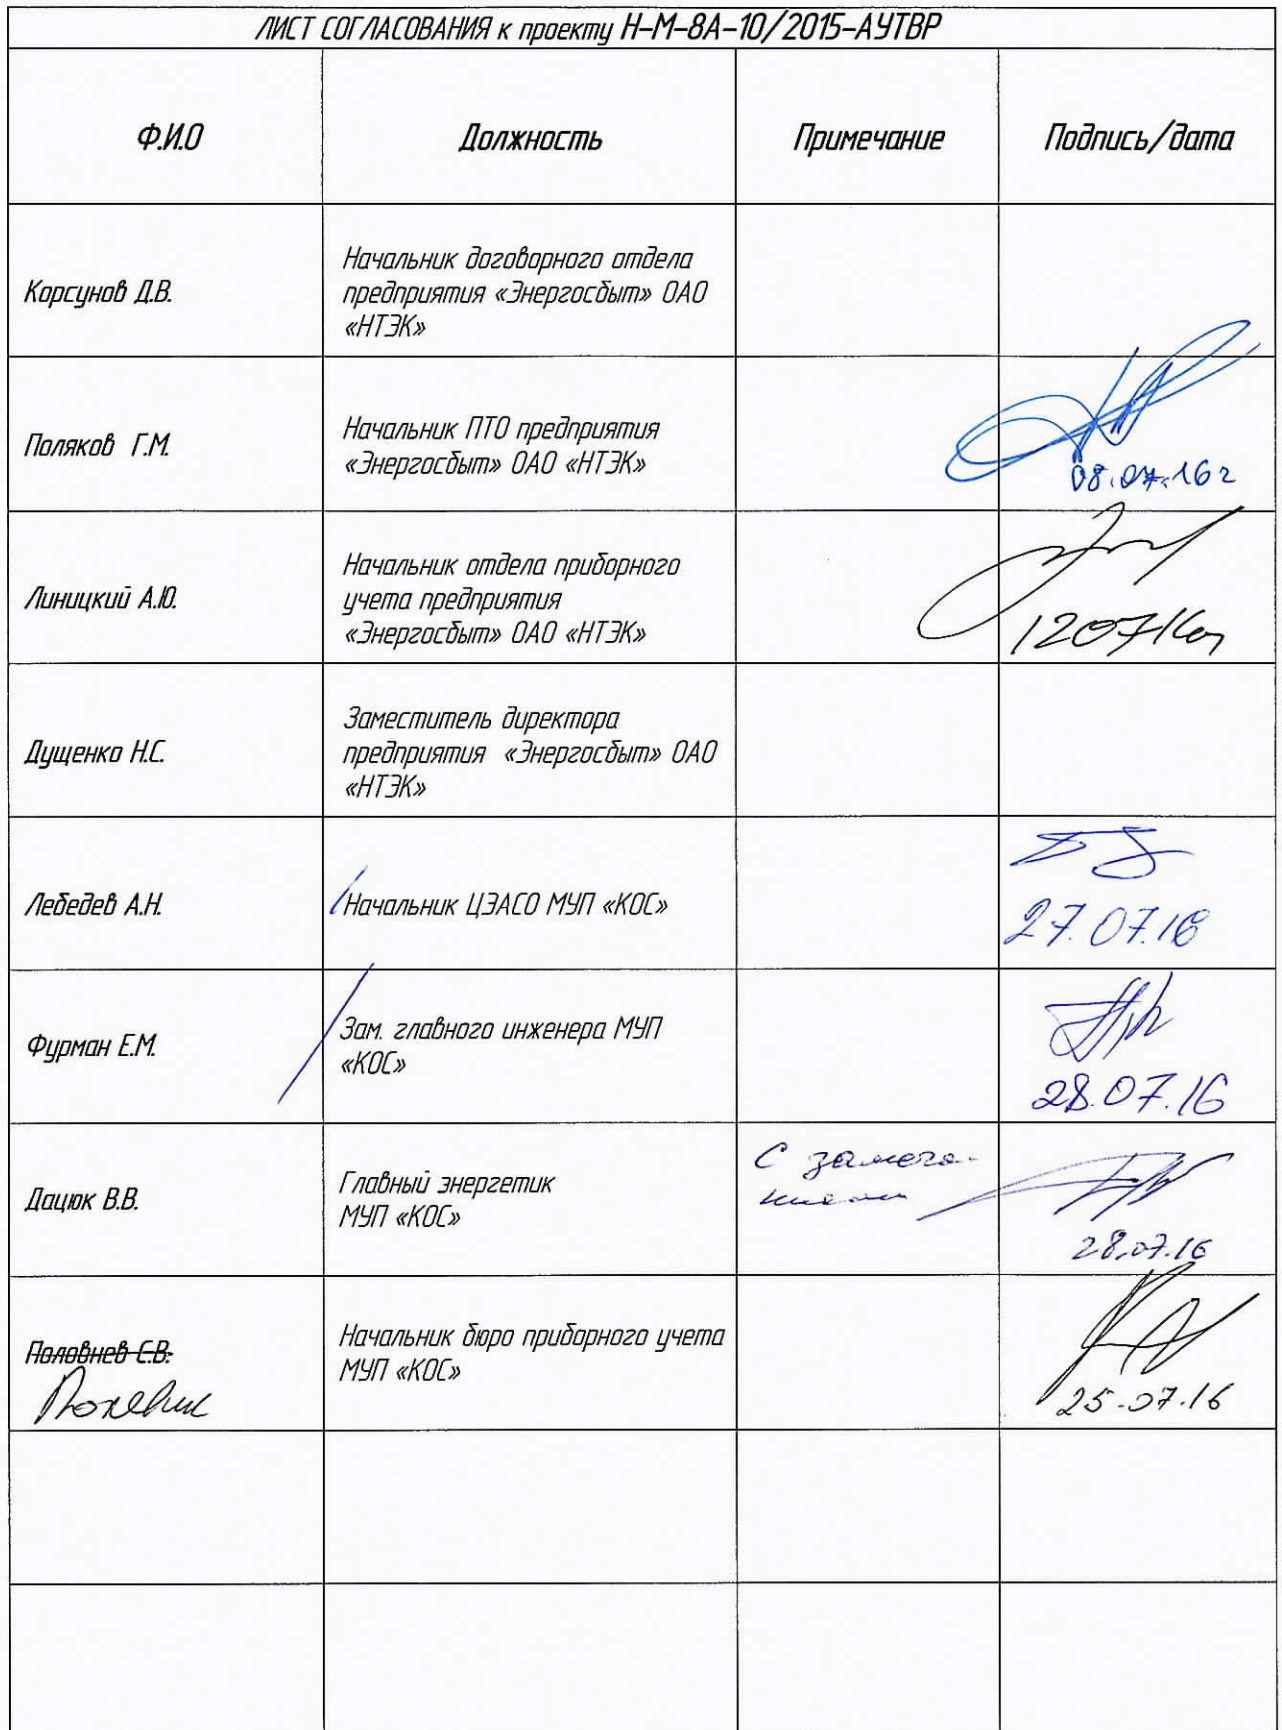 ЛИСТ СОГЛАСОВАНИЯ к проекту Н-М-8А-10/2015-АУТВР
Ф.И.О Должность Примечание Подпись/дата
Корсунов Д.В.
Начальник договорного отдела
предприятия «Энергосбыт» ОАО
«НТЭК»
Поляков Г.М.
Начальник ПТО предприятия
«Энергосбыт» ОАО «НТЭК»
08.07.16г
Линицкий А.Ю.
Начальник отдела приборного
учета предприятия
«Энергосбыт» ОАО «НТЭК»
120716г
Дущенко Н.С.
Заместитель директора
предприятия «Энергосбыт» ОАО
«НТЭК»
Лебедев А.Н.
Начальник ЦЭАСО МУП «КОС»
27.07.16
Фурман Е.М.
Зам. главного инженера МУП
«КОС»
28.07.16
Дацюк В.В.
Главный энергетик
МУП «КОС»
С замеча-
ниями
28.07.16
Половнев С.В.
Начальник бюро приборного учета
МУП «КОС»
25.07.16